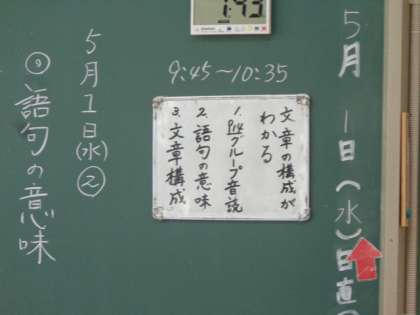 5月1日(水)日直
9:45～10:35
文章の構成が
わかる
1. P14グループ音読
2. 語句の意味
3. 文章構成
5月1日(水)②
◎語句の意味